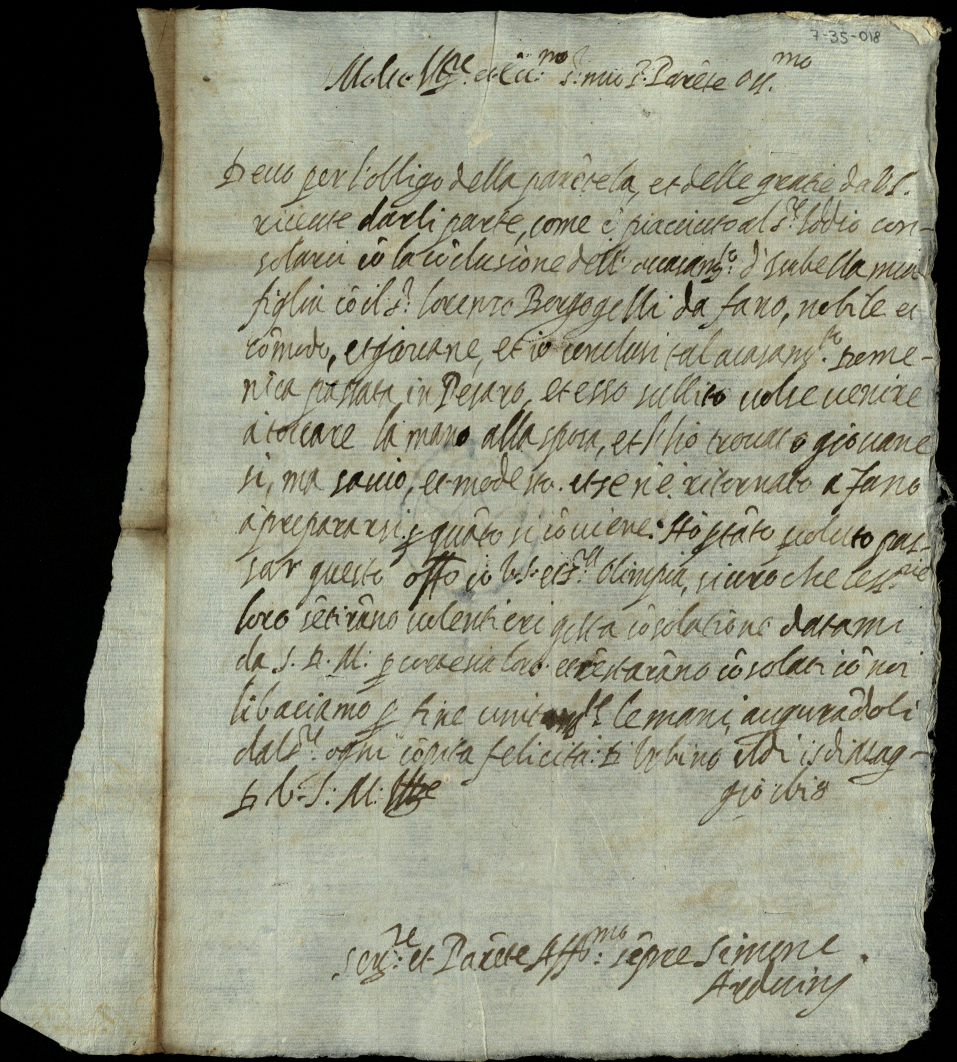 7-35-018
Molto Ill.re et ecc.mo S.r mio P. Parēte oss.mo
Devo per l'obligo della parētela, et delle gratie da V.S.
ricevute darli parte, come è piacciuto al S.r Iddio con-
solarci cō la cōclusione dell' accasam.to d'Isabella mia
figlia cō il S.r Lorenzo Borgogelli da fano, nobile et
cōmodo, et giovane, et io conclusi tal acasam.to Dome-
nica passata in Pesaro, et esso subbito volse venire
à toccare la mano alla sposa, et l'hò trovato giovane
si, ma savio, et modesto. et se n'è ritornato a Fano
à prepararsi p quāto si cōviene. Hò ptāto voluto pas-
sar questo offo cō V.S. et S.ra Olimpia, sicuro che le SS.rie
loro sētirāno volentieri q̄sta cōsolatione datami
da S. D. M: p cortesia loro et restarāno cōsolati cō noi
li baciamo p fine unitam.te le mani, augurādoli
dal S.r ogni cōpita felicità: D Urbino il dì is di Mag-
D V. S: M: Ill.re gio 1618
Ser.re et Parēte Aff.mo sēpre Simone
Arduini